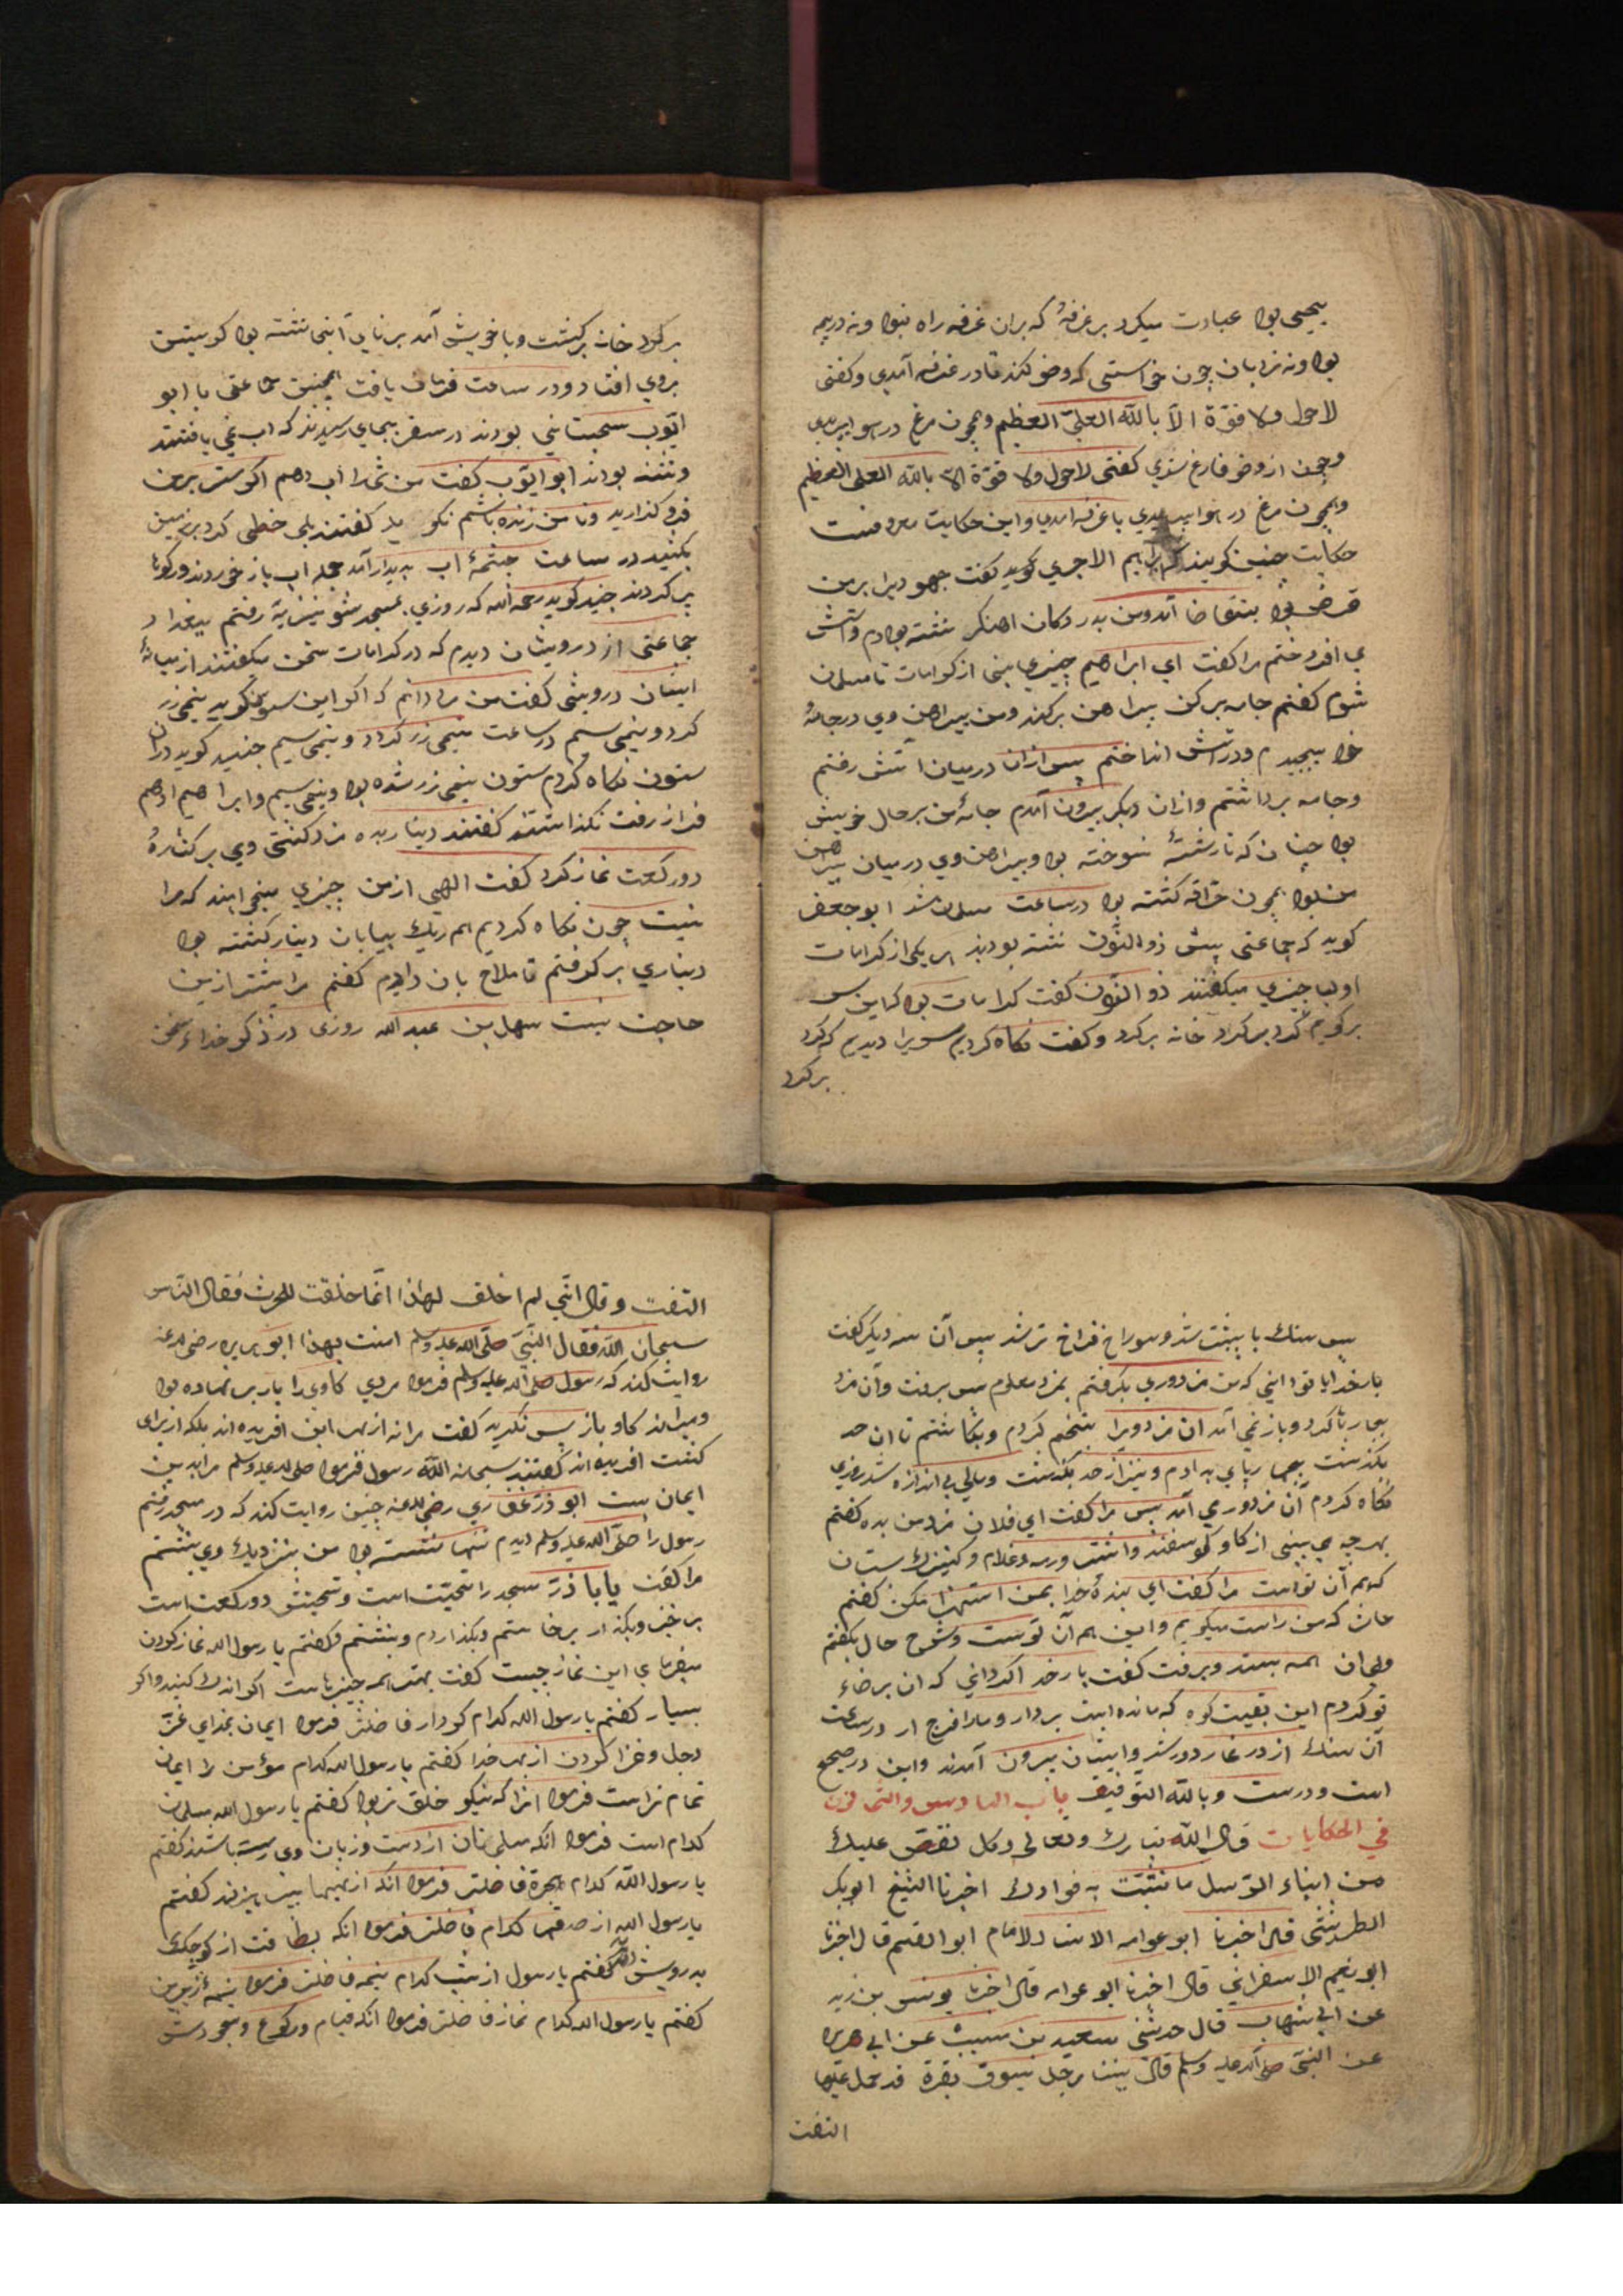 یحیی بود عبادت میکرد بر غرفهٔ که بران غرفه راه نبود ونه دریچه
بود ونه نردبان چون خواستی که وضو کند تا در غرفه آمدی وکفتی
لاحول ولا قوّة الاّ بالله العلیّ العظیم وهمچون مرغ در هوا بپریدی
وچون از وضو فارغ شدی کفتی لاحول ولا قوّة الا بالله العلی العظیم
وهمچون مرغ در هوا بپریدی با غرفه آمدی واین حکایت معروفست
حکایت چنین کویند که ابراهیم الاجری کوید کفت جهودیرا بر من
قرض بود بتقاضا آمد ومن بدر دکان اهنکر نشسته بودم واتش
می افروختم مرا کفت ای ابراهیم چیزی بمن از کرامات تا مسلمان
شوم کفتم جامه برکن پیراهن برکند ومن پیراهن وی در جامهٔ
خود پیچیدم ودر آتش انداختم پس ازان در میان آتش رفتم
وجامه برداشتم وازان دیکر بیرون آمدم جامهٔ من بر حال خویش
بود چنان که تار رشتهٔ نسوخته بود وپیراهن وی در میان پیراهن
من بود همچون حراقه کشته بود در ساعت مسلمان شد ابو جعفر
کوید که جماعتی پیش ذو النّون نشسته بودند هر یکی از کرامات
اولیا چیزی میکفتند ذو النّون کفت کرامات بود که این
برکویم کرد بر کرد خانه برکرد وکفت نکاه کردیم سویرا دیدیم که کرد
برکرد
برکرد خانه برکشت وباخویش آمد برنایی آنجا نشسته بود کو سیتق
بروی افتاد ودر ساعت فرمان یافت همچنین جماعتی با ابو
ایّوب سجستانی بودند در سفر بجای رسیدند که اب نمی یافتند
وتشنه بودند ابو ایّوب کفت من شمارا اب دهم اکر ستر بر من
فرو کذارید وتا من زنده باشم نکویید کفتند بلی خطی کرد بر زمین
بکشید در ساعت چشمهٔ اب پدیدار آمد جمله اب باز خوردند ورکوها
پر کردند جنید کوید رحمه الله که روزی بمسجد شونیزیه رفتم ببغداد
جماعتی از درویشان دیدم که در کرامات سخن میکفتند از میانهٔ
ایشان درویشی کفت من مردی دانم که اکر این ستون را کوید نیمی زر
کرد ونیمی سیم در ساعت نیمی زر کردد ونیمی سیم جنید کوید دران
ستون نکاه کردم ستون نیمی زر شده بود ونیمی سیم وابراهیم ادهم
فراز رفت نکذاشتند کفتند دینار بده مزد کشتی وی بر کنارهٔ
دو رکعت نماز کرد کفت الهی از من چیزی میخواهند که مرا
نیست چون نکاه کردیم همه ریک بیابان دینار کشته بود
دیناری بر کرفتم تا ملاح بان دادم کفتم مرا بیشتر ازین
حاجت نیست سهل بن عبد الله روزی در ذکر خداء سخن
پس سنک با پشت شد وسوراخ فراخ تر شد پس آن سه دیکر کفت
بار خدایا تو دانی که من مزدوری بکرفتم بمزد معلوم پس برفت وآن مزد
بها رها کرد وباز نمی آمد ان مزد ویرا بتخم کردم وبکاشتم تا ان حد
بکذشت بچهار پای بدادم ونیز از حد بکذشت ومالی بی اندازه شد روزی
نکاه کردم آن مزدور می آمد پس مرا کفت ای فلان مزد من بده کفتم
هر چه می بینی از کاو وکوسفند واشتر ورمه وغلام وکنیزک بستان
که همه آن تو است مرا کفت ای بندهٔ خدا بمن استهزا مکن کفتم
حاش که من راست میکویم واین همه آن توست وشرح حال بکفتم
وی ان همه بستد وبرفت کفت بار خدا اکر دانی که ان برضاء
تو کردم این بقیت کوه که مانده است بردار ومارا فرج ار در ساعت
آن سنک از در غار دور شد وایشان بیرون آمدند واین در صحیح
است ودرست وبالله التّوفیق باب السادس والثمانون
فی الحکایات قال الله تبارک وتعالی وکلا نقصّ علیک
من انباء الرّسل ما نثبّت به فوادک اخبرنا الشیخ ابو بکر
الطریثیثی قال اخبرنا ابو عوامه الاستاد الامام ابو القسم قال اخبرنا
ابو نعیم الاسفراینی قال اخبرنا ابو عوامه قال اخبرنا یونس بن زید
عن ابی شهاب قال حدثنی سعید بن مسیب عن ابی هریره
عن النبیّ صلی الله علیه وسلم قال بینما رجل یسوق بقرة قد حمل علیها
التفت
التفتت وقال انّی لم اخلق لهذا انّما خلقت للحرث فقال النّاس
سبحان الله فقال النّبیّ صلّی الله علیه وسلم امنت بهذا ابو هریره رضی الله عنه
روایت کند که رسول صلی الله علیه وسلم فرمود مردی کاوی را بار بر نهاده بود
ومیراند کاو باز پس نکرید کفت مرا نه از بهر این افریده اند بلکه از برای
کشت افریده اند کفتند سبحان الله رسول فرمود صلی الله علیه وسلم مرا بدین
ایمان ست ابو ذر غفاری رضی الله عنه چنین روایت کند که در مسجد رفتم
رسول را صلّی الله علیه وسلم دیدم تنها نشسته بود من بنزدیک وی بنشستم
مرا کفت یابا ذرّ مسجد را تحیّتت است وتحیتش دو رکعت است
بر خیز وبکذار برخاستم وبکذاردم وبنشستم وکفتم یا رسول الله نماز کردن
میفرمای این نماز چیست کفت بهترهمه چیزهاست اکر اندک کنید واکر
بسیار کفتم یا رسول الله کدام کردار فاضلتر فرمود ایمان بخدای عزّ
وجل وغزا کردن از بهر خدا کفتم یا رسول الله کدام مؤمن را ایمان
تمام تراست فرمود انرا که نیکو خلق تر بود کفتم یا رسول الله مسلمان
کدام است فرمود انکه مسلمانان از دست وزبان وی رست باشند کفتم
یا رسول الله کدام هجرة فاضلتر فرمود انکه از بدیها بپرهیزند کفتم
یا رسول الله از صدقها کدام فاضلتر فرمود انکه بطاقت از کوچک
بدرویش کفتم یا رسول الله از شب کدام نیمه فاضلتر فرمود نیمهٔ زیرین
کفتم یا رسول الله کدام نماز فاضلتر فرمود انکه قیام ورکوع وسجودش